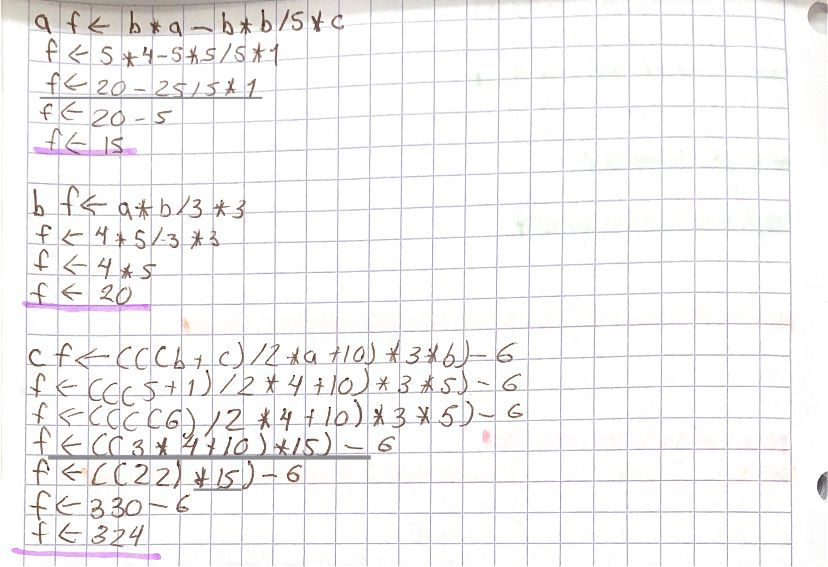 a f ← b * a - b * b / 5 * c
f ← 5 * 4 - 5 * 5 / 5 * 1
f ← 20 - 25 / 5 * 1
f ← 20 - 5
f ← 15
b f ← a * b / 3 * 3
f ← 4 * 5 / 3 * 3
f ← 4 * 5
f ← 20
c f ← (((b + c) / 2 * a + 10) * 3 * b) - 6
f ← (((5 + 1) / 2 * 4 + 10) * 3 * 5) - 6
f ← ((((6) / 2 * 4 + 10) * 3 * 5) - 6
f ← ((3 * 4 + 10) * 15) - 6
f ← ((22) * 15) - 6
f ← 330 - 6
f ← 324